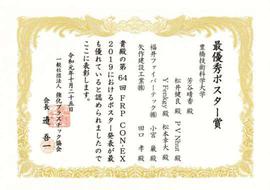 最優秀ポスター賞
豊橋技術科学大学
芳谷晴香 殿
P V Nhut 殿
松井健良 殿
Y Fenkay 殿
松本幸大 殿
福井ファイバーテック㈱ 小宮 巌 殿
矢作建設工業㈱ 田口 孝 殿
貴殿の第64回FRP CON-EX
2019におけるポスター発表が最
も優れていると認められましたので
ここに表彰します。
令和元年十月二十五日
一般社団法人 強化プラスチック協会
会長 邉 吾一